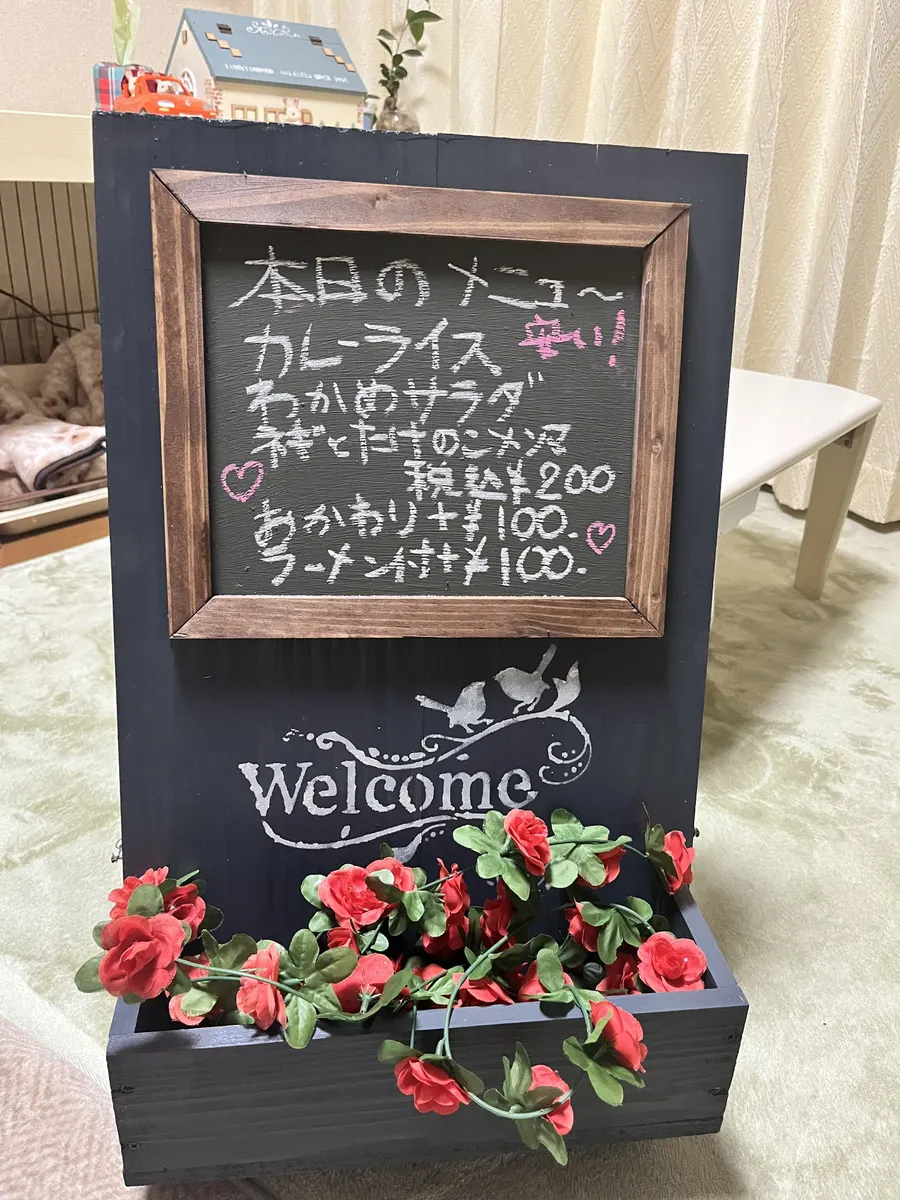 本日のメニュ～
辛い!
カレーライス
わかめサラダ
ネギとたけのこメンマ
税込¥200
おかわり+¥100.
ラーメン付+¥100.
Welcome